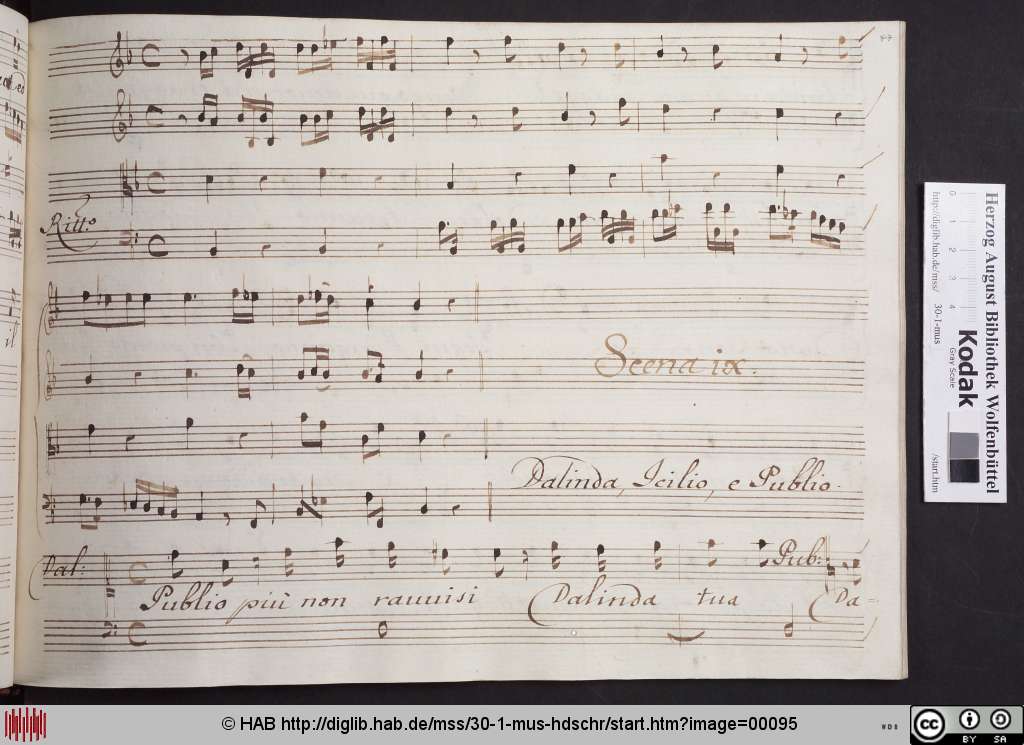 Ritt.o
Scena ix.
Dalinda, Icilio, e Publio.
Dal:
Pub:
Publio più non rauuisi Dalinda tua Da=
Herzog August Bibliothek Wolfenbüttel
Kodak
Gray Scale
0 1 2 3 4
http://diglib.hab.de/mss/ 30-1-mus /start.htm
© HAB http://diglib.hab.de/mss/30-1-mus-hdschr/start.htm?image=00095
WDB
cc BY SA